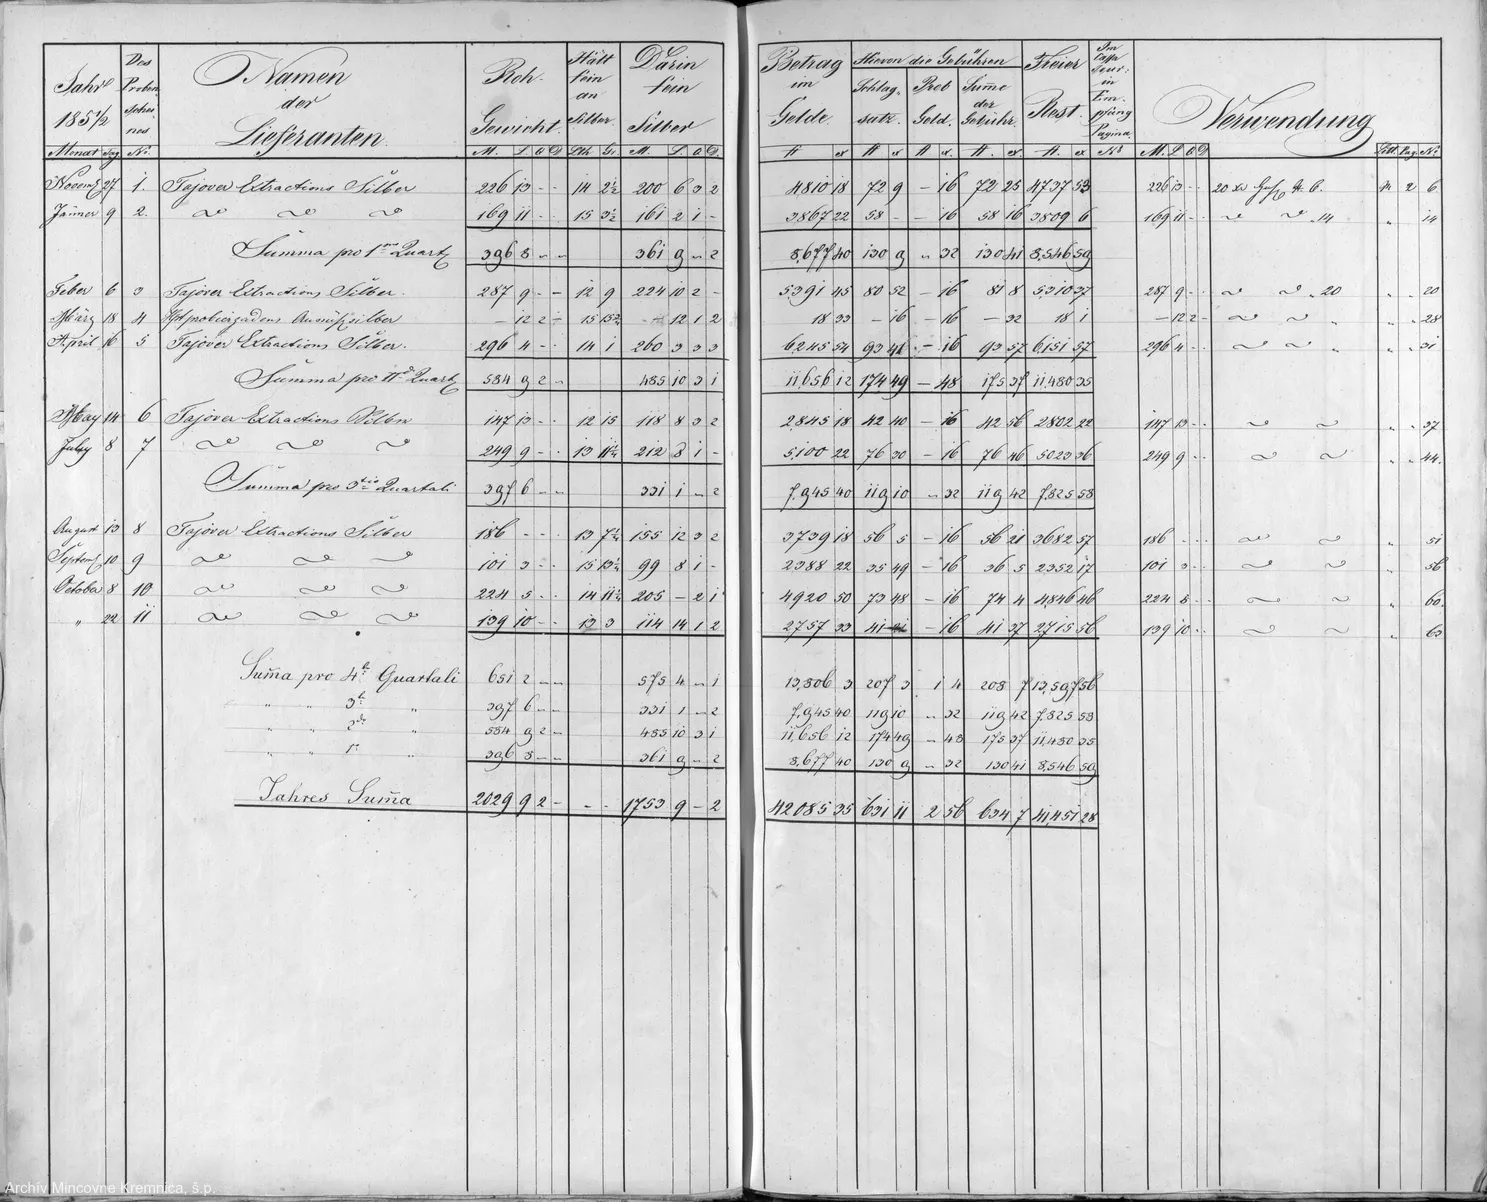 Jahr 185½ Des Proben Scheines Namen der Lieferanten Roh-Gewicht Hält fein an Silber Darin fein Silber Betrag im Gelde Hievon die Gebühren Schlagsatz. Prob Geld. Sum̃e der Gebühr. Freier Rest. Im Cassa Jour: in Empfang Pagina. Verwendung
Monat Tag No. M. L Q D Lth Gr. M. L. Q. D. fl x fl x fl x fl. x fl. x No M. L Q D Litt. Pag. No
Novemb 27 1. Tajover Extractions Silber 226 13 - - 14 2½ 200 6 3 2 4810 18 72 9 - 16 72 25 4737 53 226 13 - - 20 xr 6. 2 6
Jänner 9 2. 169 11 - - 15 3½ 161 2 1 - 3867 22 58 - - 16 58 16 3809 6 169 11 - - " 14 " 14
Summa pro 1mo Quart 396 8 - - 361 9 - 2 8,677 40 130 9 " 32 130 41 8,546 59
Feber 6 3 Tajover Extractions Silber. 287 9 - - 12 9 224 10 2 - 5391 45 80 52 - 16 81 8 5310 37 287 9 - - " 20 " " 20
März 18 4 - 12 2 - 15 - 12 1 2 18 33 - 16 - 16 - 32 18 1 - 12 2 - " " " 28
April 16 5 Tajover Extractions Silber. 296 4 - - 14 1 260 3 3 3 6245 54 93 41 - 16 93 57 6151 57 296 4 - - " " " 31
Summa pro IId Quart 584 9 2 - 485 10 3 1 11,656 12 174 49 - 48 175 37 11,480 35
May 14 6 Tajover Extractions Silber 147 13 - - 12 15 118 8 3 2 2845 18 42 40 - 16 42 56 2802 22 147 13 - - " " 37
July 8 7 249 9 - - 13 212 8 1 - 5,100 22 76 30 - 16 76 46 5023 36 249 9 - - " " 44.
Summa pro 3tio Quartali 397 6 - - 331 1 - 2 7,945 40 119 10 " 32 119 42 7,825 58
August 13 8 Tajover Extractions Silber 186 - - - 13 155 12 3 2 3739 18 56 5 - 16 56 21 3682 57 186 - - - " 51
Septemb 10 9 101 3 - - 15 99 8 1 - 2388 22 35 49 - 16 36 5 2352 17 101 3 - - " 56
October 8 10. 224 5 - - 14 205 - 2 1 4920 50 73 48 - 16 74 4 4846 46 224 8 - - " 60.
" 22 11 139 10 - - 13 3 114 14 1 2 2757 33 41 - 16 41 37 2715 56 139 10 - - " 63
Sum̃a pro 4t Quartali 651 2 - - 575 4 - 1 13,806 3 207 3 1 4 208 7 13,597 56
" " 3t " 397 6 - - 331 1 - 2 7,945 40 119 10 " 32 119 42 7,825 58
" " 2do " 584 9 2 - 485 10 3 1 11,656 12 174 49 - 48 175 37 11,480 35
" " 1t " 396 8 - - 361 9 - 2 8,677 40 130 9 - 32 130 41 8,546 59
Jahres Sum̃a 2029 9 2 - - - 1753 9 - 2 42085 35 631 11 2 56 634 7 41,451 28
Archív Mincovne Kremnica, š.p.